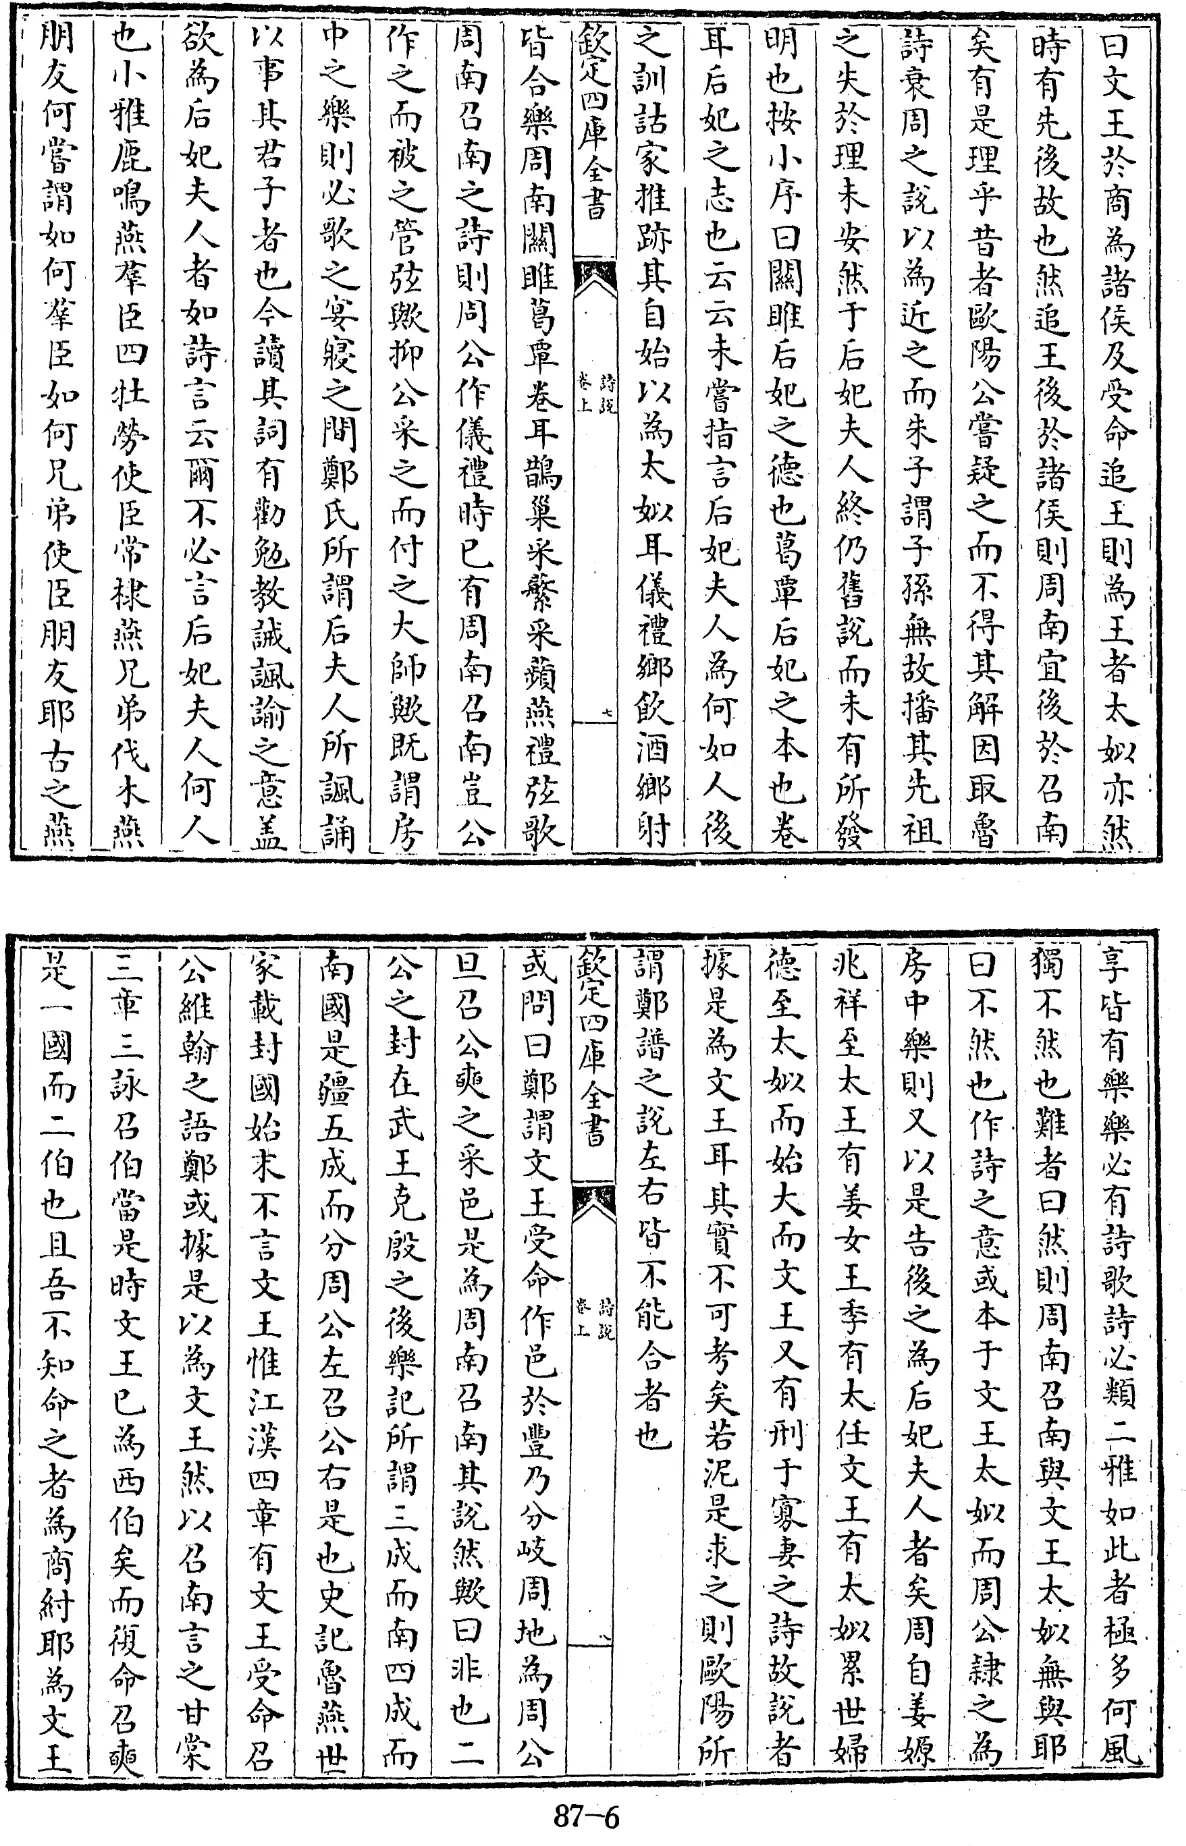 曰文王於商為諸侯及受命追王則為王者太姒亦然
時有先後故也然追王後於諸侯則周南宜後於召南
矣有是理乎昔者歐陽公嘗疑之而不得其解因取魯
詩衰周之說以為近之而朱子謂子孫無故播其先祖
之失於理未安然于后妃夫人終仍舊說而未有所發
明也按小序曰關雎后妃之德也葛覃后妃之本也卷
耳后妃之志也云云未嘗指言后妃夫人為何如人後
之訓詁家推跡其自始以為太姒耳儀禮鄉飲酒鄉射
欽定四庫全書
詩說
卷上
七
皆合樂周南關雎葛覃卷耳鵲巢采蘩采蘋燕禮弦歌
周南召南之詩則周公作儀禮時已有周南召南豈公
作之而被之管弦歟抑公采之而付之大師歟既謂房
中之樂則必歌之宴寢之間鄭氏所謂后夫人所諷誦
以事其君子者也今讀其詞有勸勉教誡諷諭之意盖
欲為后妃夫人者如詩言云爾不必言后妃夫人何人
也小雅鹿鳴燕羣臣四牡勞使臣常棣燕兄弟伐木燕
朋友何嘗謂如何羣臣如何兄弟使臣朋友耶古之燕
享皆有樂樂必有詩歌詩必類二雅如此者極多何風
獨不然也難者曰然則周南召南與文王太姒無與耶
曰不然也作詩之意或本于文王太姒而周公隷之為
房中樂則又以是告後之為后妃夫人者矣周自姜嫄
兆祥至太王有姜女王季有太任文王有太姒累世婦
德至太姒而始大而文王又有刑于寡妻之詩故說者
據是為文王耳其實不可考矣若泥是求之則歐陽所
謂鄭譜之說左右皆不能合者也
欽定四庫全書
詩說
卷上
八
或問曰鄭謂文王受命作邑於豐乃分岐周地為周公
旦召公奭之采邑是為周南召南其說然歟曰非也二
公之封在武王克殷之後樂記所謂三成而南四成而
南國是疆五成而分周公左召公右是也史記魯燕世
家載封國始末不言文王惟江漢四章有文王受命召
公維翰之語鄭或據是以為文王然以召南言之甘棠
三章三詠召伯當是時文王已為西伯矣而復命召奭
是一國而二伯也且吾不知命之者為商紂耶為文王
87-6